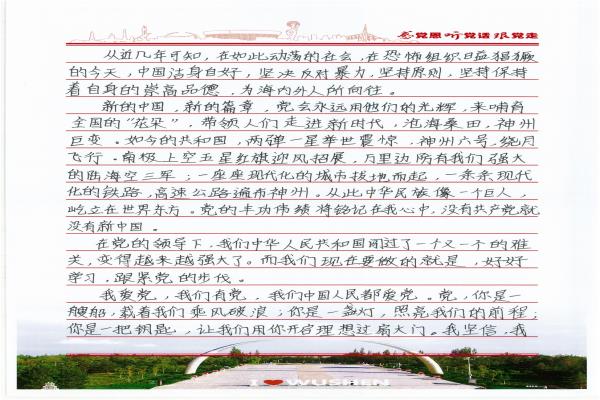 感党恩 听党话 跟党走
从近几年可知，在如此动荡的社会，在恐怖组织日益猖獗
的今天，中国洁身自好，坚决反对暴力，坚持原则，坚持保持
着自身的崇高品德，为海内外人所向往。
新的中国，新的篇章，党会永远用他们的光辉，来哺育
全国的“花朵”，带领人们走进新时代，沧海桑田，神州
巨变。如今的共和国，两弹一星举世震惊，神州六号，绕月
飞行。南极上空五星红旗迎风招展，万里边防有我们强大
的陆海空三军；一座座现代化的城市拔地而起，一条条现代
化的铁路，高速公路遍布神州。从此中华民族像一个巨人，
屹立在世界东方。党的丰功伟绩将铭记在我心中，没有共产党就
没有新中国。
在党的领导下，我们中华人民共和国闯过了一个又一个的难
关，变得越来越强大了。而我们现在要做的就是，好好
学习，跟紧党的步伐。
我爱党，我们有党，我们中国人民都爱党。党，你是一
艘船，载着我们乘风破浪；你是一盏灯，照亮我们的前程；
你是一把钥匙，让我们用你开启理想过扇大门。我坚信，我
I ❤ WUSHEN